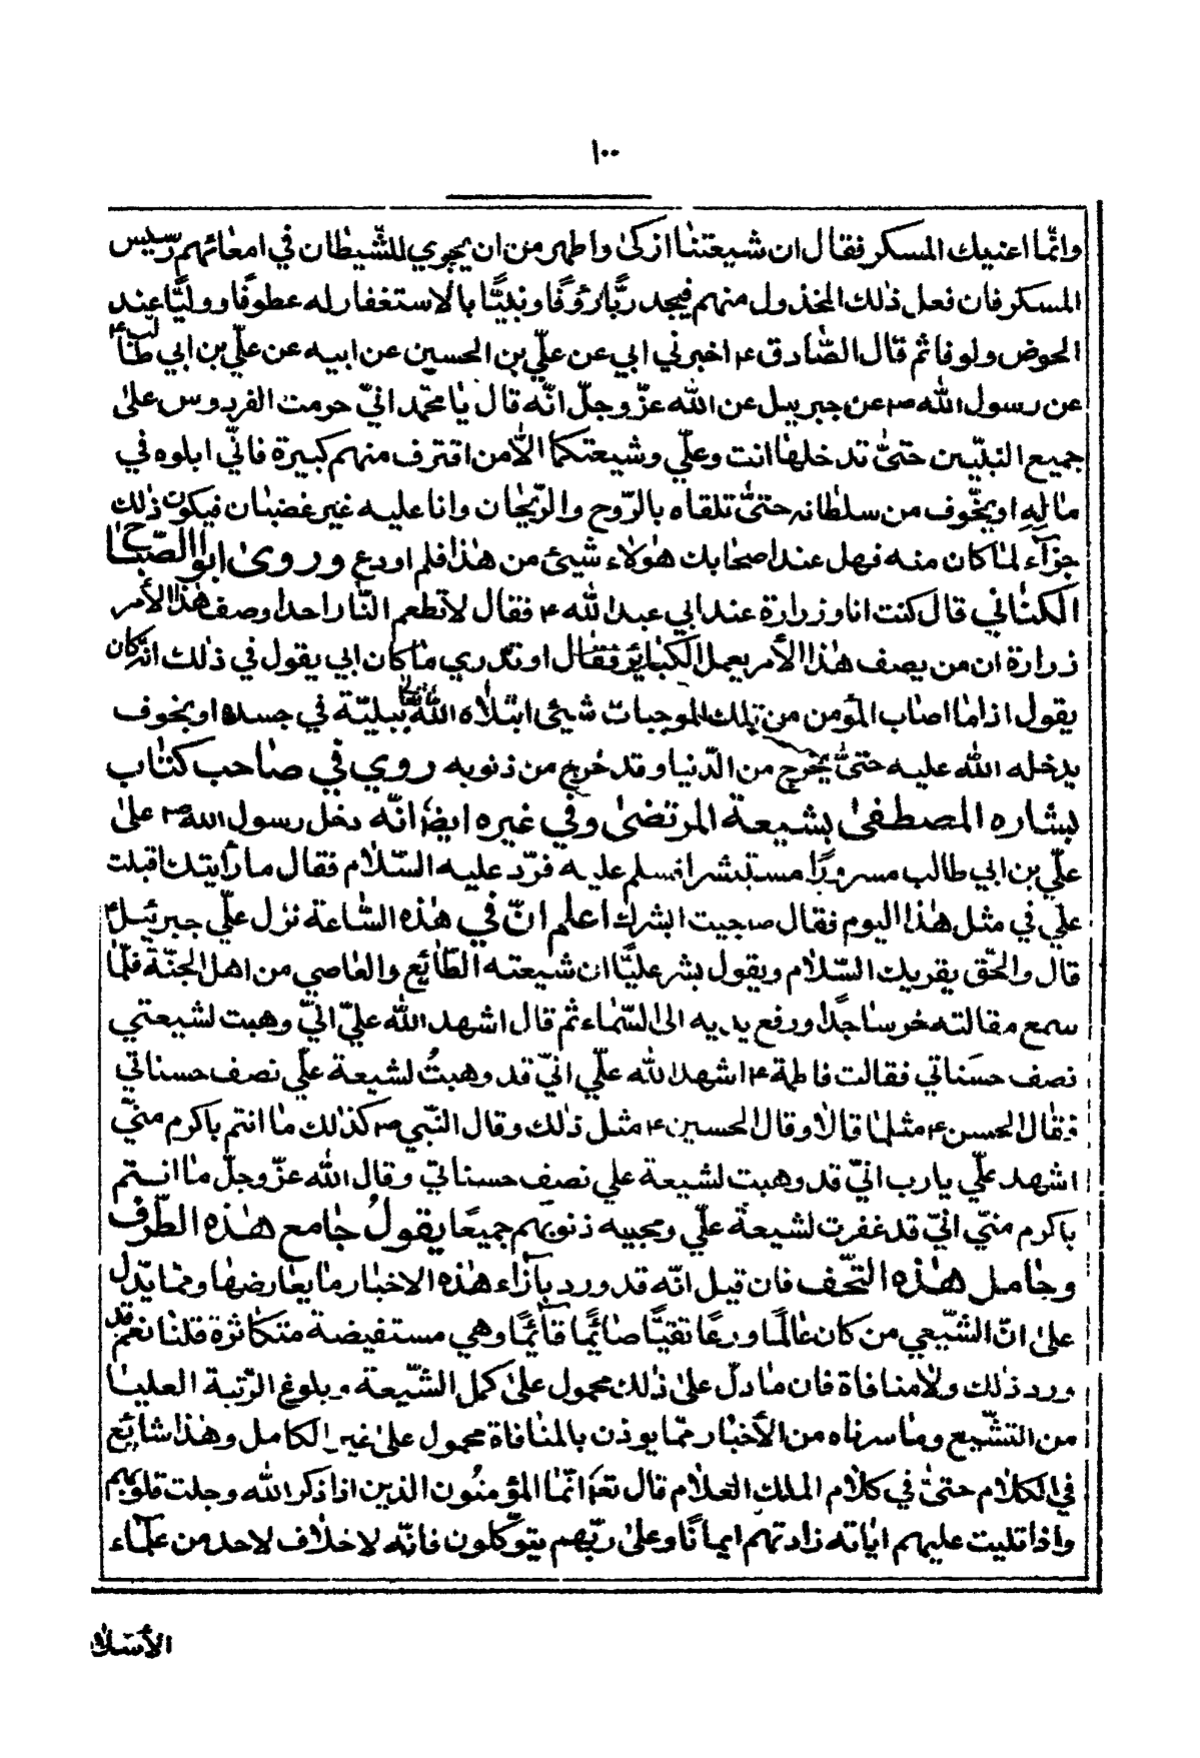 ١٠٠
وانّما اعنيك المسكر فقال ان شيعتنا ازكىٰ واطهر من ان يجري للشّيطان في امعائهم رسيس
المسكر فان فعل ذٰلك المخذول منهم فيجد ربًّا رؤفًا ونبيًّا بالاستغفار له عطوفًا ووليًّا عند
الحوض ولوفا ثم قال الصّادق ع اخبرني ابي عن عليّ بن الحسين عن ابيه عن عليّ بن ابي طالب ع
عن رسول الله ص عن جبرييل عن الله عزّ وجلّ انّه قال يا محمّد انّي حرمت الفردوس علىٰ
جميع النبيّين حتىّٰ تدخلها انت وعليّ وشيعتكما الاّ من اقترف منهم كبيرة فانّي ابلوه في
ماله او بخوف من سلطانه حتىّٰ تلقاه بالرّوح والرّيحان وانا عليه غير غضبان فيكون ذٰلك
جزآء لما كان منه فهل عند اصحابك هٰؤلاء شيئ من هٰذا فلم اودع وروىٰ ابو الصّباح
الكناني قال كنت انا وزرارة عند ابي عبد الله ع فقال لا تطعم النّار احدا وصف هٰذا الأمر
زرارة ان من يصف هٰذا الأمر يعمل الكبائر فقال او تدري ما كان ابي يقول في ذٰلك انّه كان
يقول اذا ما اصاب المؤمن من تلك الموجبات شيئ ابتلاه الله ببليّة في جسده او بخوف
يدخله الله عليه حتىّٰ يخرج من الدّنيا وقد خرج من ذنوبه روي في صاحب كتاب
بشاره المصطفىٰ بشيعة المرتضىٰ وفي غيره ايضا انّه دخل رسول الله ص علىٰ
عليّ بن ابي طالب مسرورًا مستبشرا فسلم عليه فردّ عليه السّلام فقال ما رأيتك اقبلت
عليّ في مثل هٰذا اليوم فقال ص جيت ابشرك اعلم انّ في هٰذه السّاعة نزل عليّ جبرئيل ع
قال والحقّ يقريك السّلام ويقول بشر عليًّا ان شيعته الطّائع والعاصي من اهل الجنّة فلمّا
سمع مقالته خر ساجدًا ورفع يديه الى السّماء ثم قال اشهد الله عليّ انّي وهبت لشيعتي
نصف حسناتي فقالت فاطمة ع اشهد الله عليّ انّي قد وهبتُ لشيعة عليّ نصف حسناتي
فقال الحسن ع مثلما قالا وقال الحسين ع مثل ذٰلك وقال النّبي ص كذٰلك ما انتم باكرم منّي
اشهد عليّ يا رب انّي قد وهبت لشيعة علي نصف حسناتي وقال الله عزّ وجلّ ما انتم
باكرم منّي انّي قد غفرت لشيعة عليّ ومحبيه ذنوبهم جميعًا يقولُ جامع هٰذه الطّرف
وحامل هٰذه التّحف فان قيل انّه قد ورد بآزاء هٰذه الاخبار ما يعارضها ومما يدّل
علىٰ انّ الشّيعي من كان عالمًا ورعًا تقيًّا صائمًا قآئمًا وهي مستفيضة متكاثرة قلنا نعم قد
ورد ذٰلك ولا منافاة فان ما دلّ علىٰ ذٰلك محمول علىٰ كمل الشّيعة وبلوغ الرّتبة العليا
من التشّيع وما سرناه من الأخبار ممّا يوذن بالمنافاة محمول علىٰ غير الكامل وهٰذا شائع
في الكلام حتىّٰ في كلام الملك العلام قال تعٰ انّما المؤمنُون الذين اذا ذكر الله وجلت قلوبهم
واذا تليت عليهم اٰياته زادتهم ايمانًا وعلىٰ ربّهم يتوكّلون فانّه لا خلاف لاحد من علمآء
الأسلام